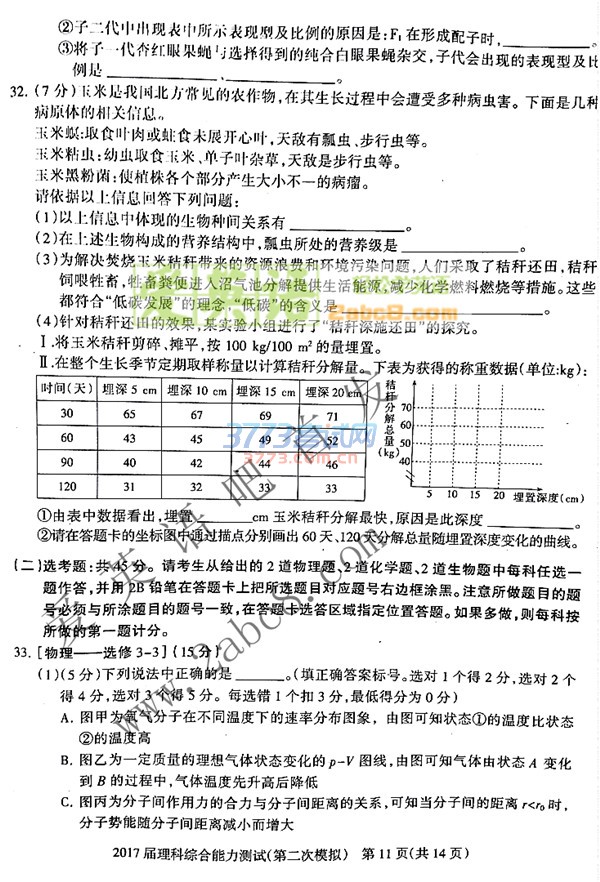 ②子二代中出现表中所示表现型及比例的原因是:F₁在形成配子时,__________。
③将子一代杏红眼果蝇与选择得到的纯合白眼果蝇杂交,子代会出现的表现型及比
例是__________、__________。
32.(7分)玉米是我国北方常见的农作物,在其生长过程中会遭受多种病虫害。下面是几种
病原体的相关信息。
玉米螟:取食叶肉或蛀食未展开心叶,天敌有瓢虫、步行虫等。
玉米粘虫:幼虫取食玉米、单子叶杂草,天敌是步行虫等。
玉米黑粉菌:使植株各个部分产生大小不一的病瘤。
请依据以上信息回答下列问题:
(1)以上信息中体现的生物种间关系有__________。
(2)在上述生物构成的营养结构中,瓢虫所处的营养级是__________。
(3)为解决焚烧玉米秸秆带来的资源浪费和环境污染问题,人们采取了秸秆还田,秸秆
饲喂牲畜,牲畜粪便进入沼气池分解提供生活能源,减少化学燃料燃烧等措施。这些
都符合“低碳发展”的理念,“低碳”的含义是__________。
(4)针对秸秆还田的效果,某实验小组进行了“秸秆深施还田”的探究。
Ⅰ.将玉米秸秆剪碎、摊平,按 100 kg/100 m²的量埋置。
Ⅱ.在整个生长季节定期取样称量以计算秸秆分解量。下表为获得的称重数据(单位:kg):
时间(天) 埋深 5 cm 埋深 10 cm 埋深 15 cm 埋深 20 cm
30 65 67 69 71
60 43 45 49 52
90 40 42 44 46
120 31 32 33 33
秸秆分解总量(kg)
70
60
50
40
5 10 15 20 埋置深度(cm)
①由表中数据看出,埋置__________cm 玉米秸秆分解最快,原因是此深度__________。
②请在答题卡的坐标图中通过描点分别画出 60 天、120 天分解总量随埋置深度变化的曲线。
(二)选考题:共 45 分。请考生从给出的 2 道物理题、2 道化学题、2 道生物题中每科任选一
题作答,并用 2B 铅笔在答题卡上把所选题目对应题号右边框涂黑。注意所做题目的题
号必须与所涂题目的题号一致,在答题卡选答区域指定位置答题。如果多做,则每科按
所做的第一题计分。
33.[物理——选修 3-3](15 分)
(1)(5 分)下列说法中正确的是__________。(填正确答案标号。选对 1 个得 2 分,选对 2 个
得 4 分,选对 3 个得 5 分。每选错 1 个扣 3 分,最低得分为 0 分)
A. 图甲为氧气分子在不同温度下的速率分布图象,由图可知状态①的温度比状态
②的温度高
B. 图乙为一定质量的理想气体状态变化的 p-V 图线,由图可知气体由状态 A 变化
到 B 的过程中,气体温度先升高后降低
C. 图丙为分子间作用力的合力与分子间距离的关系,可知当分子间的距离 r<r₀ 时,
分子势能随分子间距离减小而增大
2017 届理科综合能力测试(第二次模拟) 第 11 页(共 14 页)
爱英语吧首发
www.2abc8.com
2abc8.com
3773考试网
3773.com.cn